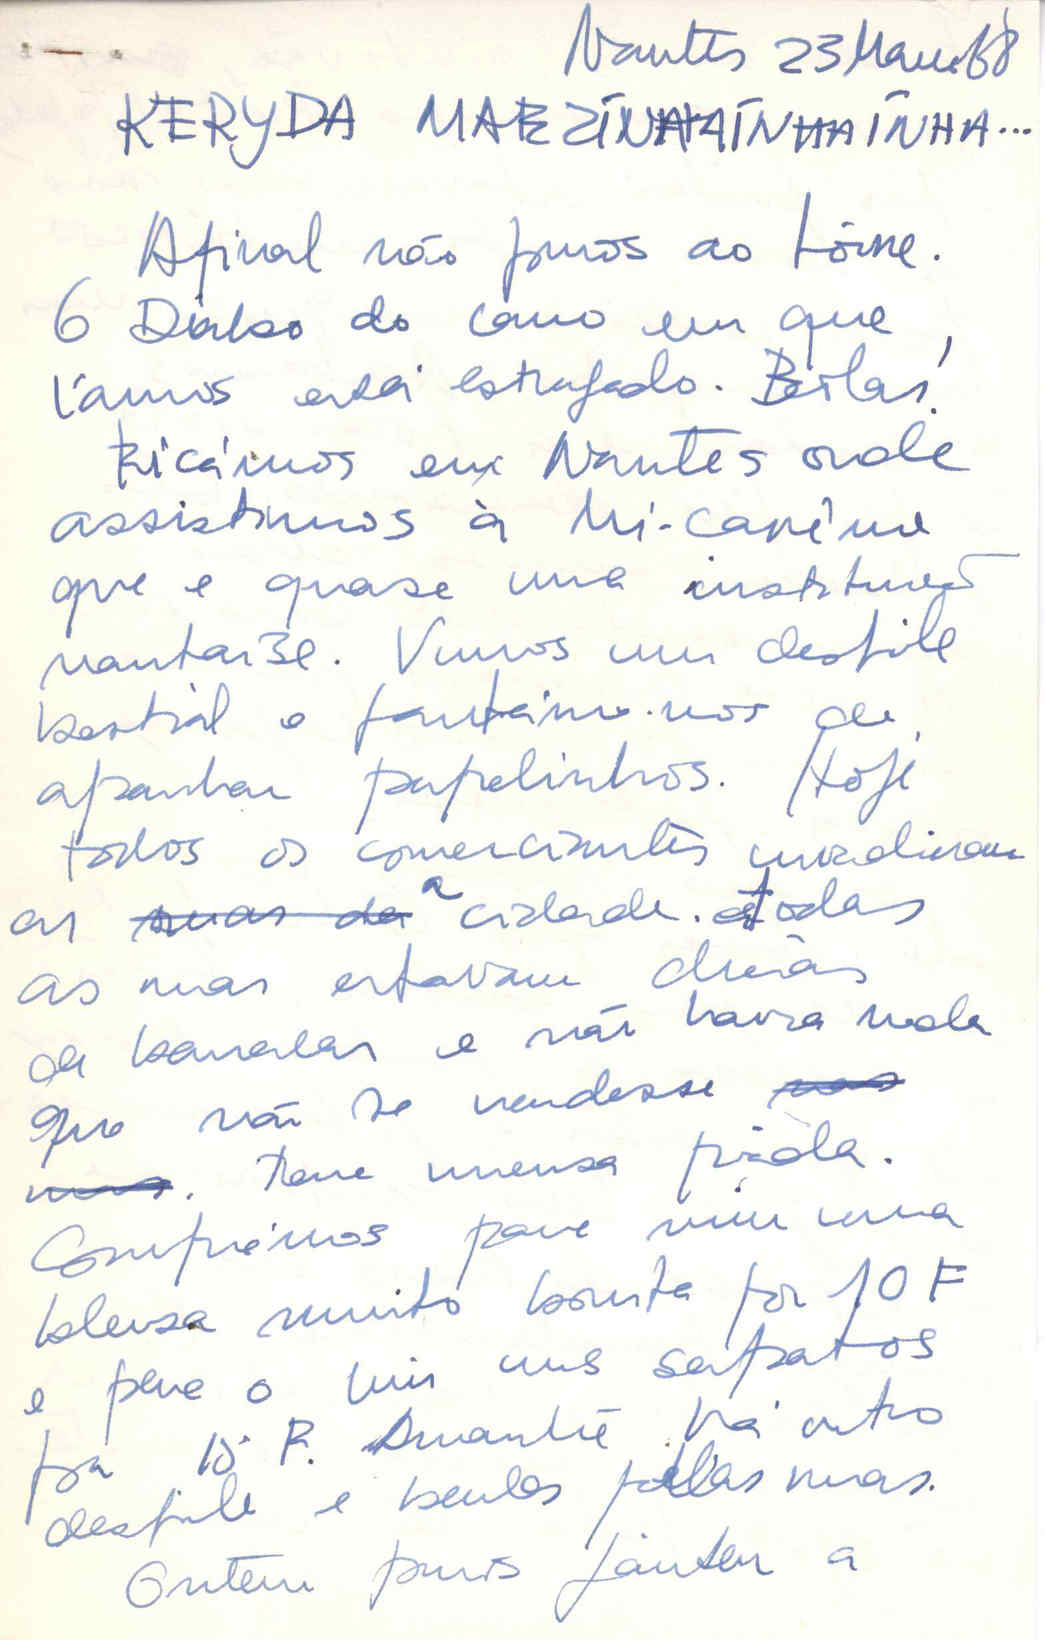 Nantes 23 Março 68
KERYDA MARZINHAINHAINHA...
Afinal não fomos ao Loire.
O Diabo do carro em que
íamos está estragado. Bolas!
Ficámos em Nantes onde
assistimos à Mi-carême
que e quase uma instituição
nantaise. Vimos um desfile
bestial e fartámo-nos de
apanhar papelinhos. Hoje
todos os comerciantes invadiram
as ruas da a cidade. todas
as ruas estavam cheias
de bancadas e não havia nada
que não se vendesse nas
ruas. Teve imensa piada.
Comprámos para mim uma
blusa muito bonita por 10 F
e para o Luis uns sapatos
por 15 F. Amanhã há outro
desfile e bailes pelas ruas.
Ontem fomos jantar a